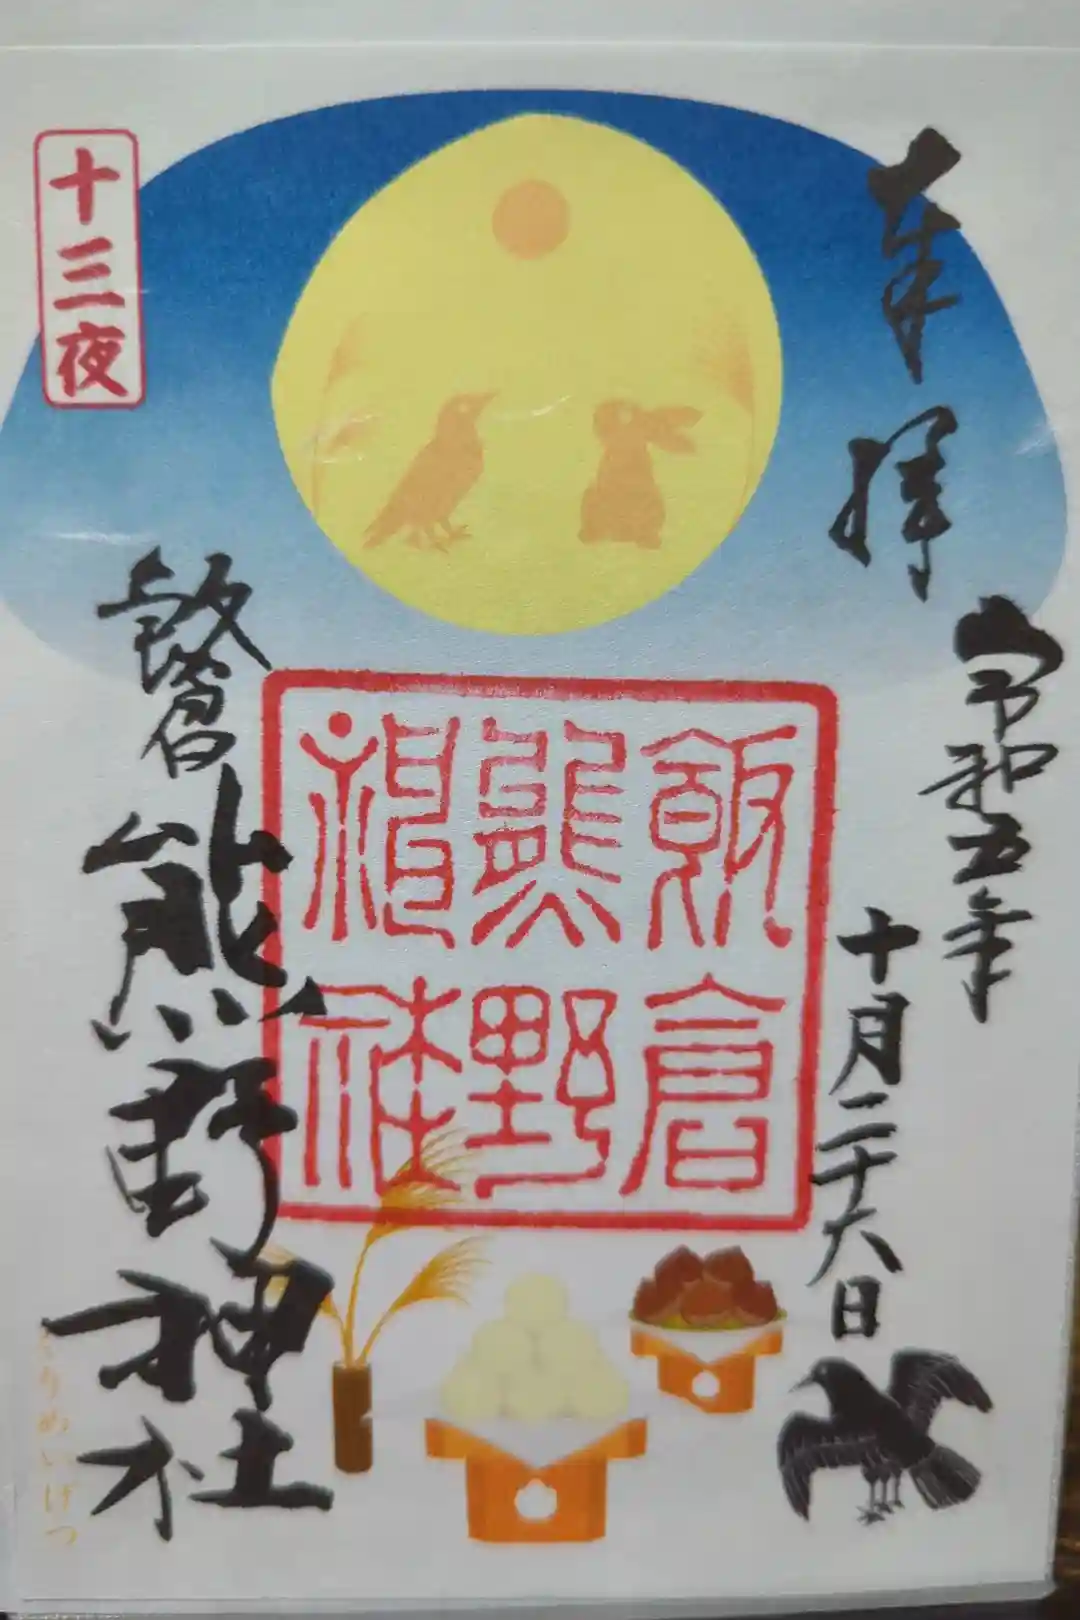 奉拝
令和五年
十月二十六日
飯倉
熊野
神社
十三夜
飯倉熊野神社
くりめいげつ